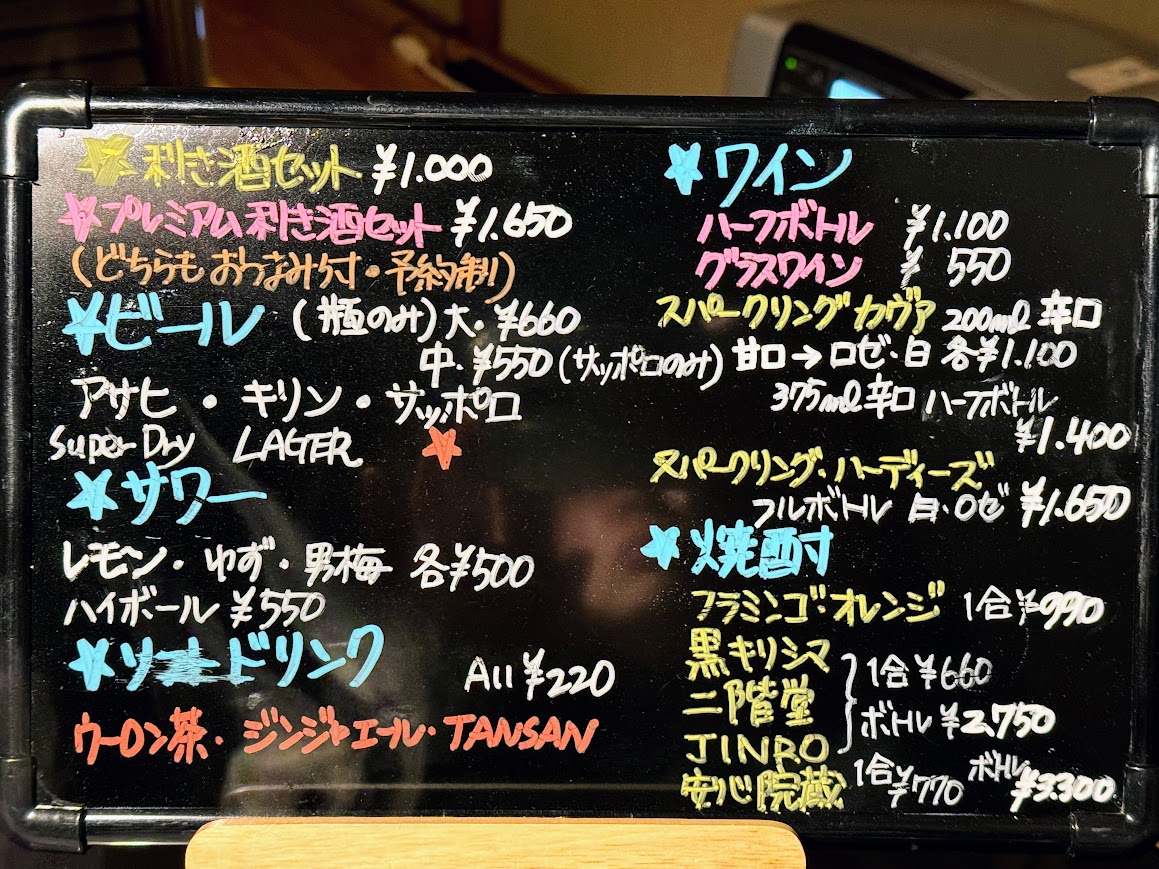 ★利き酒セット ¥1.000
★プレミアム利き酒セット ¥1.650
(どちらもおつまみ付・予約制)
★ビール (瓶のみ)大・¥660
中・¥550(サッポロのみ)
アサヒ・キリン・サッポロ
Super Dry LAGER ★
★サワー
レモン・ゆず・男梅 各¥500
ハイボール ¥550
★ソフトドリンク All ¥220
ウーロン茶・ジンジャエール・TANSAN
★ワイン
ハーフボトル ¥1.100
グラスワイン ¥550
スパークリングカヴァ 200ml 辛口
甘口→ロゼ・白 各¥1.100
375ml 辛口 ハーフボトル
¥1.400
スパークリング・ハーディーズ
フルボトル 白・ロゼ ¥1.650
★焼酎
フラミンゴ・オレンジ 1合¥990
黒キリシマ
二階堂
JINRO
1合¥660
ボトル¥2,750
安心院蔵 1合¥770 ボトル¥3.300